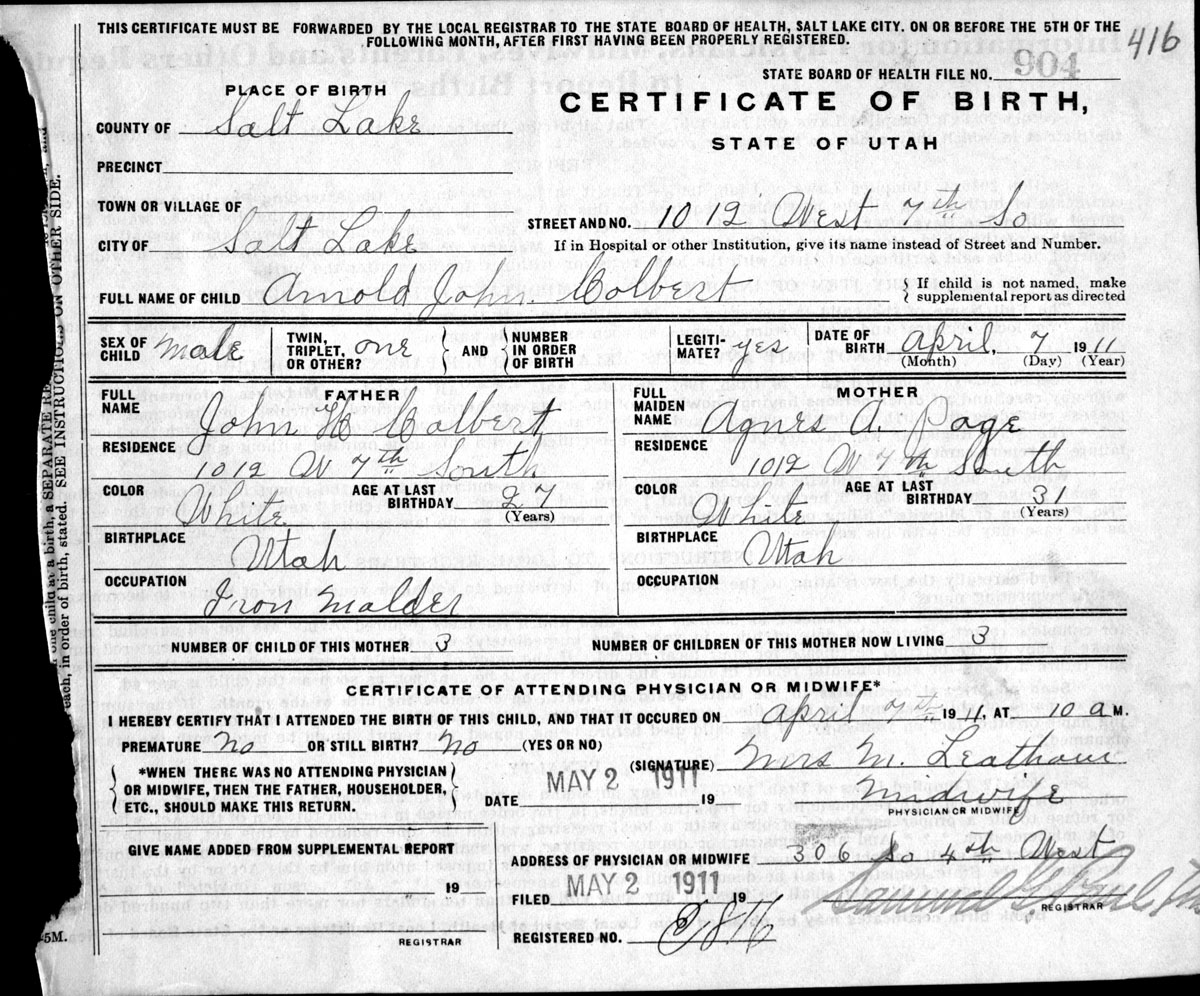 THIS CERTIFICATE MUST BE FORWARDED BY THE LOCAL REGISTRAR TO THE STATE BOARD OF HEALTH, SALT LAKE CITY. ON OR BEFORE THE 5TH OF THE
FOLLOWING MONTH, AFTER FIRST HAVING BEEN PROPERLY REGISTERED.
416
STATE BOARD OF HEALTH FILE NO. 904
PLACE OF BIRTH
CERTIFICATE OF BIRTH,
STATE OF UTAH
COUNTY OF Salt Lake
PRECINCT
TOWN OR VILLAGE OF
STREET AND NO. 1012 West 7th So
CITY OF Salt Lake
If in Hospital or other Institution, give its name instead of Street and Number.
FULL NAME OF CHILD Arnold John Colbert
If child is not named, make
supplemental report as directed
SEX OF CHILD male
TWIN, TRIPLET, OR OTHER? one
AND
NUMBER IN ORDER OF BIRTH
LEGITI- MATE? yes
DATE OF BIRTH April, 7 1911
(Month) (Day) (Year)
FATHER
FULL NAME John H Colbert
RESIDENCE 1012 W 7th South
COLOR White
AGE AT LAST BIRTHDAY 27
(Years)
BIRTHPLACE Utah
OCCUPATION Iron Malder
MOTHER
FULL MAIDEN NAME Agnes A. Page
RESIDENCE 1012 W 7th South
COLOR White
AGE AT LAST BIRTHDAY 31
(Years)
BIRTHPLACE Utah
OCCUPATION
NUMBER OF CHILD OF THIS MOTHER 3
NUMBER OF CHILDREN OF THIS MOTHER NOW LIVING 3
CERTIFICATE OF ATTENDING PHYSICIAN OR MIDWIFE*
I HEREBY CERTIFY THAT I ATTENDED THE BIRTH OF THIS CHILD, AND THAT IT OCCURED ON April 7th 1911, AT 10 a M.
PREMATURE no OR STILL BIRTH? no (YES OR NO)
*WHEN THERE WAS NO ATTENDING PHYSICIAN
OR MIDWIFE, THEN THE FATHER, HOUSEHOLDER,
ETC., SHOULD MAKE THIS RETURN.
(SIGNATURE) Mrs M. Leatham
DATE MAY 2 1911 19
Midwife
PHYSICIAN OR MIDWIFE
GIVE NAME ADDED FROM SUPPLEMENTAL REPORT
19
REGISTRAR
ADDRESS OF PHYSICIAN OR MIDWIFE 306 So 4th West
FILED MAY 2 1911 19
Samuel G. Paul
REGISTRAR
REGISTERED NO.
5M.
one child at a birth, a SEPARATE RE
each, in order of birth, stated. SEE INSTRUCTIONS ON OTHER SIDE.